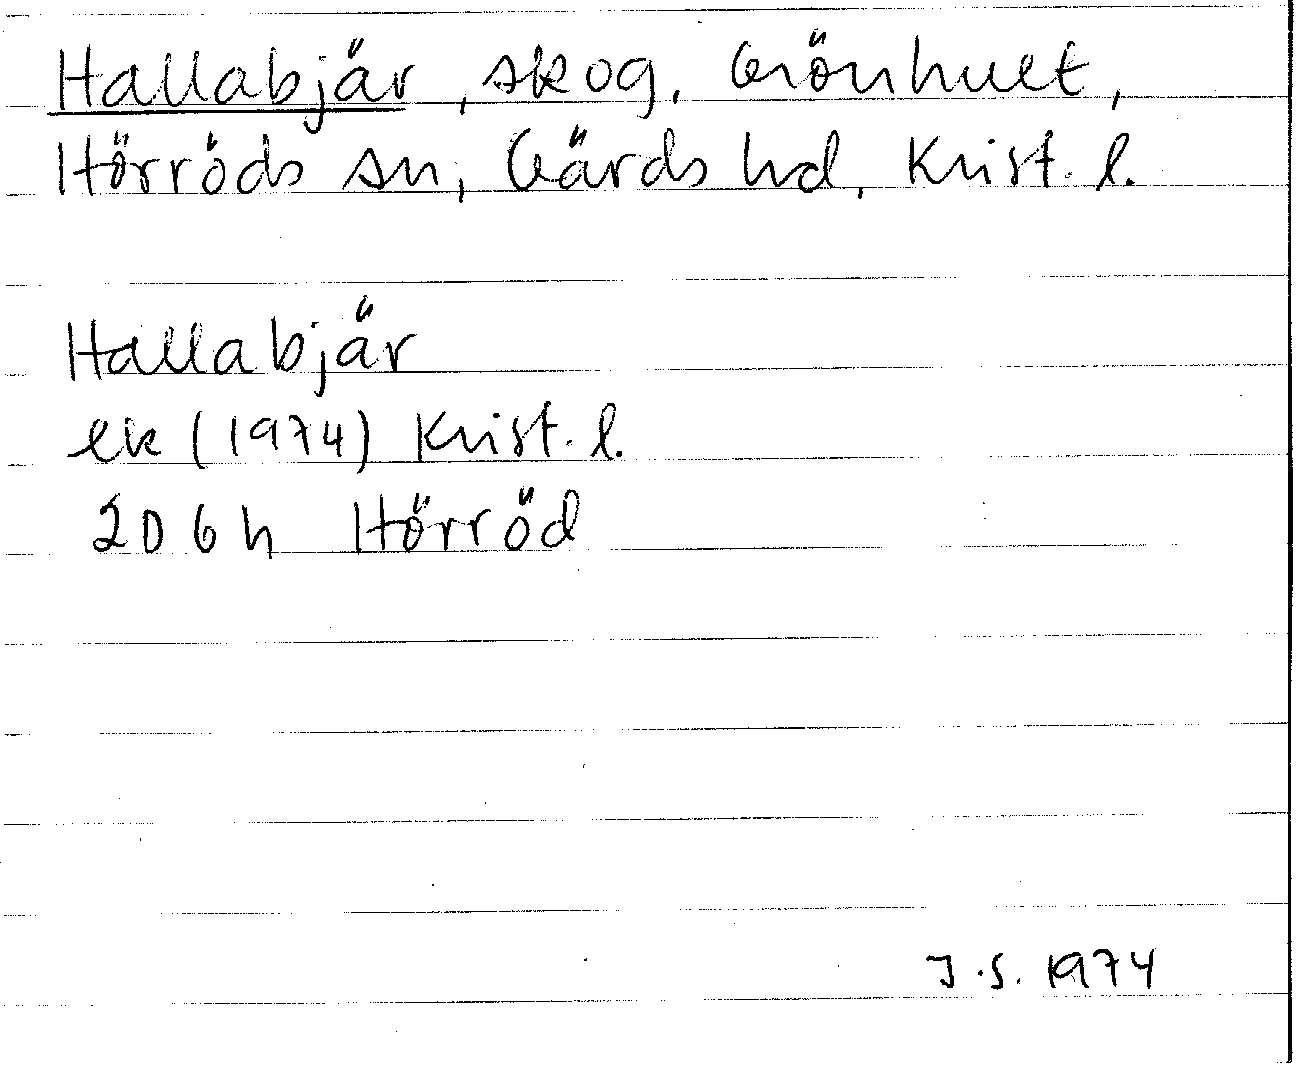 Hallabjär, skog, Grönhult,
Hörröds sn, Gärds hd, Krist. l.
Hallabjär
ek (1974) Krist. l.
2D 6h Hörröd
J.S. 1974